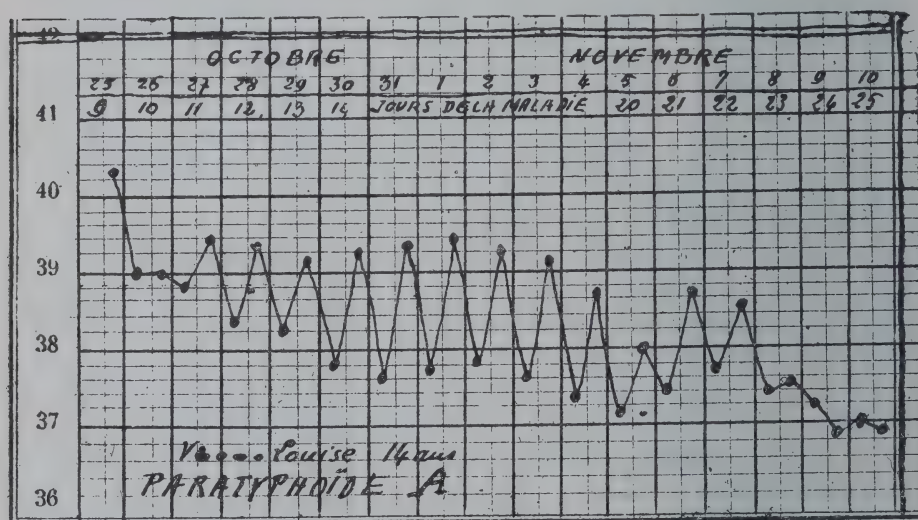 42
OCTOBRE NOVEMBRE
25 26 27 28 29 30 31 1 2 3 4 5 6 7 8 9 10
9 10 11 12 13 14 JOURS DE LA MALADIE 20 21 22 23 24 25
41
40
39
38
37
V.... Louise 14 ans
PARATYPHOÏDE A
36